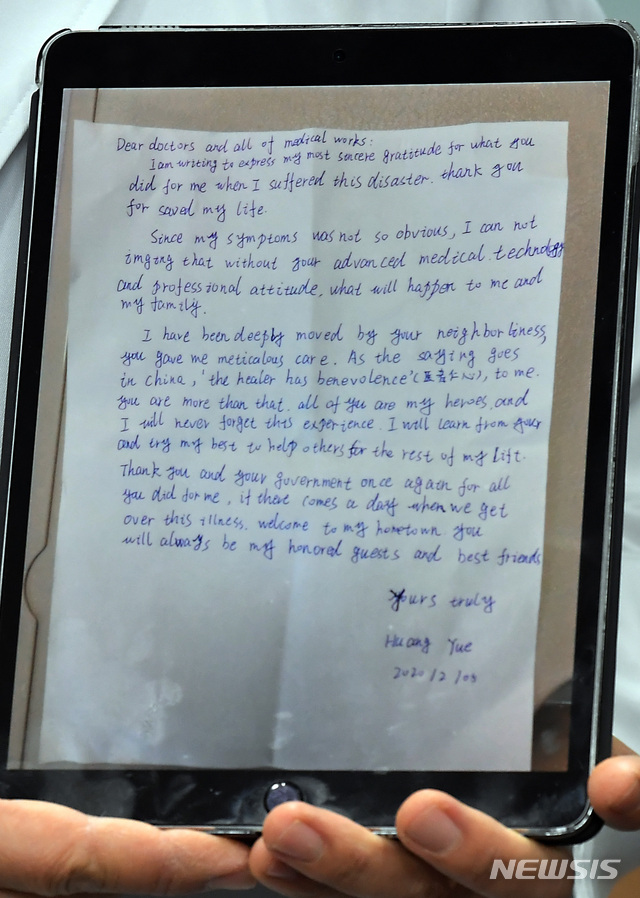 Dear doctors and all of medical works:
I am writing to express my most sincere gratitude for what you
did for me when I suffered this disaster. thank you
for saved my life.
Since my symptoms was not so obvious, I can not
imging that without your advanced medical technology
and professional attitude, what will happen to me and
my family.
I have been deeply moved by your neighborliness,
you gave me meticalous care. As the saying goes
in china, 'the healer has benevolence'(医者仁心), to me.
you are more than that. all of you are my heroes, and
I will never forget this experience. I will learn from your
and try my best to help others for the rest of my lift.
Thank you and your government once again for all
you did for me, if there comes a day when we get
over this illness. welcome to my hometown. you
will always be my honored guests and best friends
Yours truly
Huang Yue
2020/2/03
NEWSIS